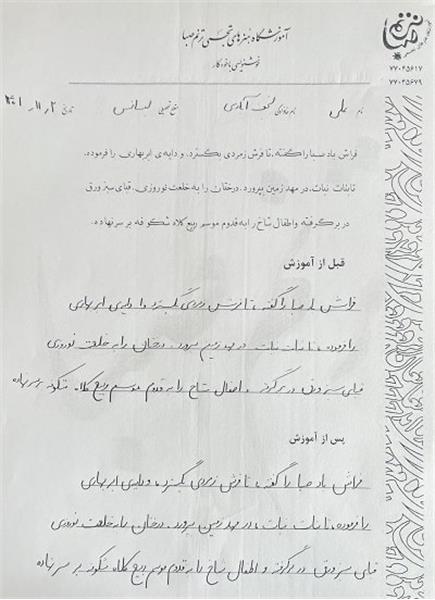 آموزشگاه هنرهای تجسمی ترنم صبا
خوشنویسی با خودکار
ترنم
۷۷۰۴۵۶۱۷
۷۷۰۴۵۶۷۹
نام علی نام خانوادگی آبادی سطح تحصیلی لیسانس تاریخ ۱۴۰۱,۱۱,۲
فراش باد صبا را گفته، تا فرش زمردی بگسترد، و دایه‌ی ابر بهاری را فرموده،
تا بنات نبات، در مهد زمین بپرورد. درختان را به خلعت نوروزی، قبای سبز ورق
در بر گرفته و اطفال شاخ را به قدوم موسم ربیع کلاه شکوفه بر سر نهاده.
قبل از آموزش
فراش باد صبا را گفته، تا فرش زمردی بگسترد و دایه‌ی ابر بهاری
را فرموده، تا بنات نبات در مهد زمین بپرورد. درختان را به خلعت نوروزی
قبای سبز ورق در بر گرفته و اطفال شاخ را به قدوم موسم ربیع کلاه شکوفه بر سر نهاده
پس از آموزش
فراش باد صبا را گفته، تا فرش زمردی بگسترد، و دایه‌ی ابر بهاری
را فرموده، تا بنات نبات، در مهد زمین بپرورد. درختان را به خلعت نوروزی
قبای سبز ورق در بر گرفته و اطفال شاخ را به قدوم موسم ربیع کلاه شکوفه بر سر نهاده